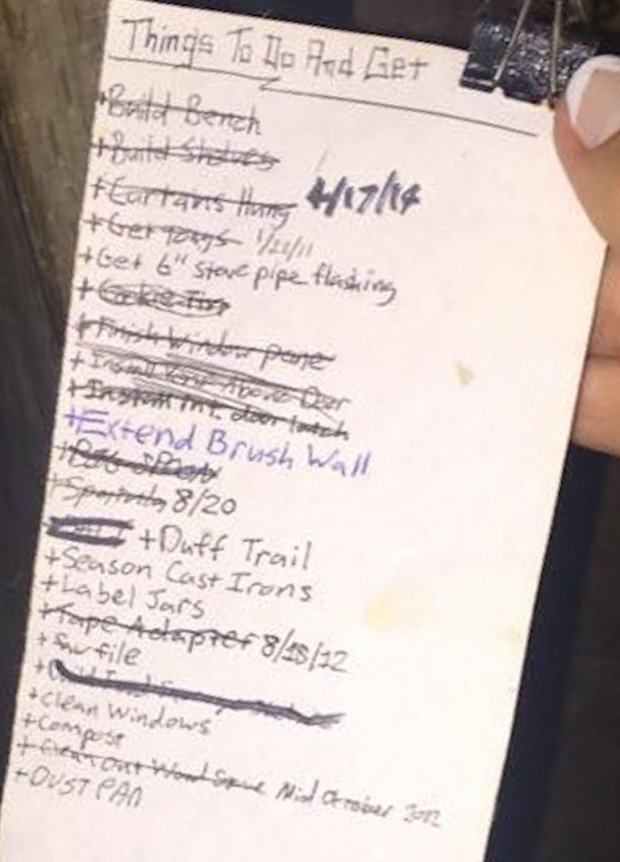 Things To Do And Get
+Build Bench
+Build Shelves
+Curtains Hung 4/17/14
+Get 1/21/11
+Get 6" stove pipe flashing
+Cookie
+Finish Window pane
+Install Above Door
+Install Int. door latch
+Extend Brush Wall
+
+ 8/20
+Duff Trail
+Season Cast Irons
+Label Jars
+Tape Adapter 8/18/12
+Saw file
+
+Clean Windows
+Compost
+Clean Out Wood Stove Mid October 2012
+DUST PAN